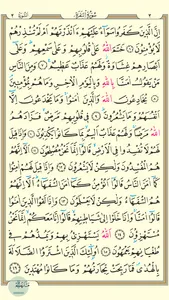 سُورَةُ البَقَرَةِ
إِنَّ الَّذِينَ كَفَرُوا سَوَاءٌ عَلَيْهِمْ ءَأَنذَرْتَهُمْ أَمْ لَمْ تُنذِرْهُمْ
لَا يُؤْمِنُونَ ٦ خَتَمَ اللَّهُ عَلَىٰ قُلُوبِهِمْ وَعَلَىٰ سَمْعِهِمْ وَعَلَىٰ
أَبْصَارِهِمْ غِشَاوَةٌ وَلَهُمْ عَذَابٌ عَظِيمٌ ٧ وَمِنَ النَّاسِ
مَن يَقُولُ ءَامَنَّا بِاللَّهِ وَبِالْيَوْمِ الْآخِرِ وَمَا هُم بِمُؤْمِنِينَ ٨
يُخَادِعُونَ اللَّهَ وَالَّذِينَ ءَامَنُوا وَمَا يَخْدَعُونَ إِلَّا
أَنفُسَهُمْ وَمَا يَشْعُرُونَ ٩ فِي قُلُوبِهِم مَّرَضٌ فَزَادَهُمُ
اللَّهُ مَرَضًا وَلَهُمْ عَذَابٌ أَلِيمٌ بِمَا كَانُوا يَكْذِبُونَ ١٠ وَإِذَا قِيلَ
لَهُمْ لَا تُفْسِدُوا فِي الْأَرْضِ قَالُوا إِنَّمَا نَحْنُ مُصْلِحُونَ ١١ أَلَا إِنَّهُمْ
هُمُ الْمُفْسِدُونَ وَلَٰكِن لَّا يَشْعُرُونَ ١٢ وَإِذَا قِيلَ لَهُمْ ءَامِنُوا
كَمَا ءَامَنَ النَّاسُ قَالُوا أَنُؤْمِنُ كَمَا ءَامَنَ السُّفَهَاءُ أَلَا إِنَّهُمْ
هُمُ السُّفَهَاءُ وَلَٰكِن لَّا يَعْلَمُونَ ١٣ وَإِذَا لَقُوا الَّذِينَ ءَامَنُوا
قَالُوا ءَامَنَّا وَإِذَا خَلَوْا إِلَىٰ شَيَاطِينِهِمْ قَالُوا إِنَّا مَعَكُمْ إِنَّمَا نَحْنُ
مُسْتَهْزِءُونَ ١٤ اللَّهُ يَسْتَهْزِئُ بِهِمْ وَيَمُدُّهُمْ فِي
طُغْيَانِهِمْ يَعْمَهُونَ ١٥ أُولَٰئِكَ الَّذِينَ اشْتَرَوُا الضَّلَالَةَ
بِالْهُدَىٰ فَمَا رَبِحَت تِّجَارَتُهُمْ وَمَا كَانُوا مُهْتَدِينَ ١٦